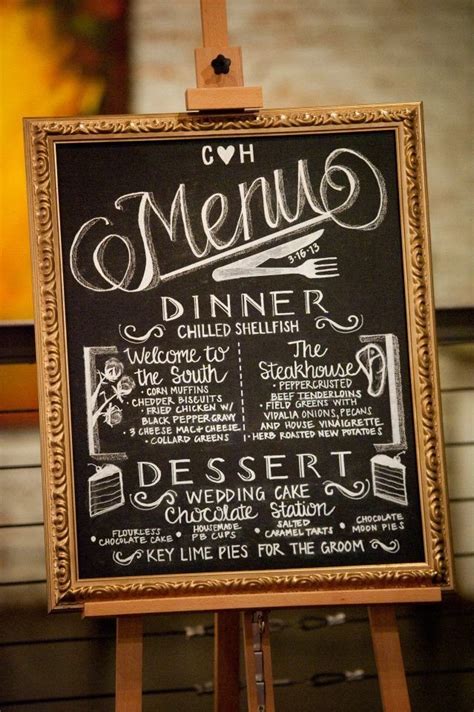 C ♥ H
Menu
3·16·13
DINNER
CHILLED SHELLFISH
Welcome to
the South
• CORN MUFFINS
• CHEDDER BISCUITS
• FRIED CHICKEN W/
BLACK PEPPER GRAVY
• 3 CHEESE MAC + CHEESE
• COLLARD GREENS
The
Steakhouse
• PEPPERCRUSTED
BEEF TENDERLOINS
• FIELD GREENS WITH
VIDALIA ONIONS, PECANS
AND HOUSE VINAIGRETTE
• HERB ROASTED NEW POTATOES
DESSERT
WEDDING CAKE
Chocolate Station
• FLOURLESS
CHOCOLATE CAKE
• HOUSEMADE
PB CUPS
• SALTED
CARAMEL TARTS
• CHOCOLATE
MOON PIES
KEY LIME PIES FOR THE GROOM